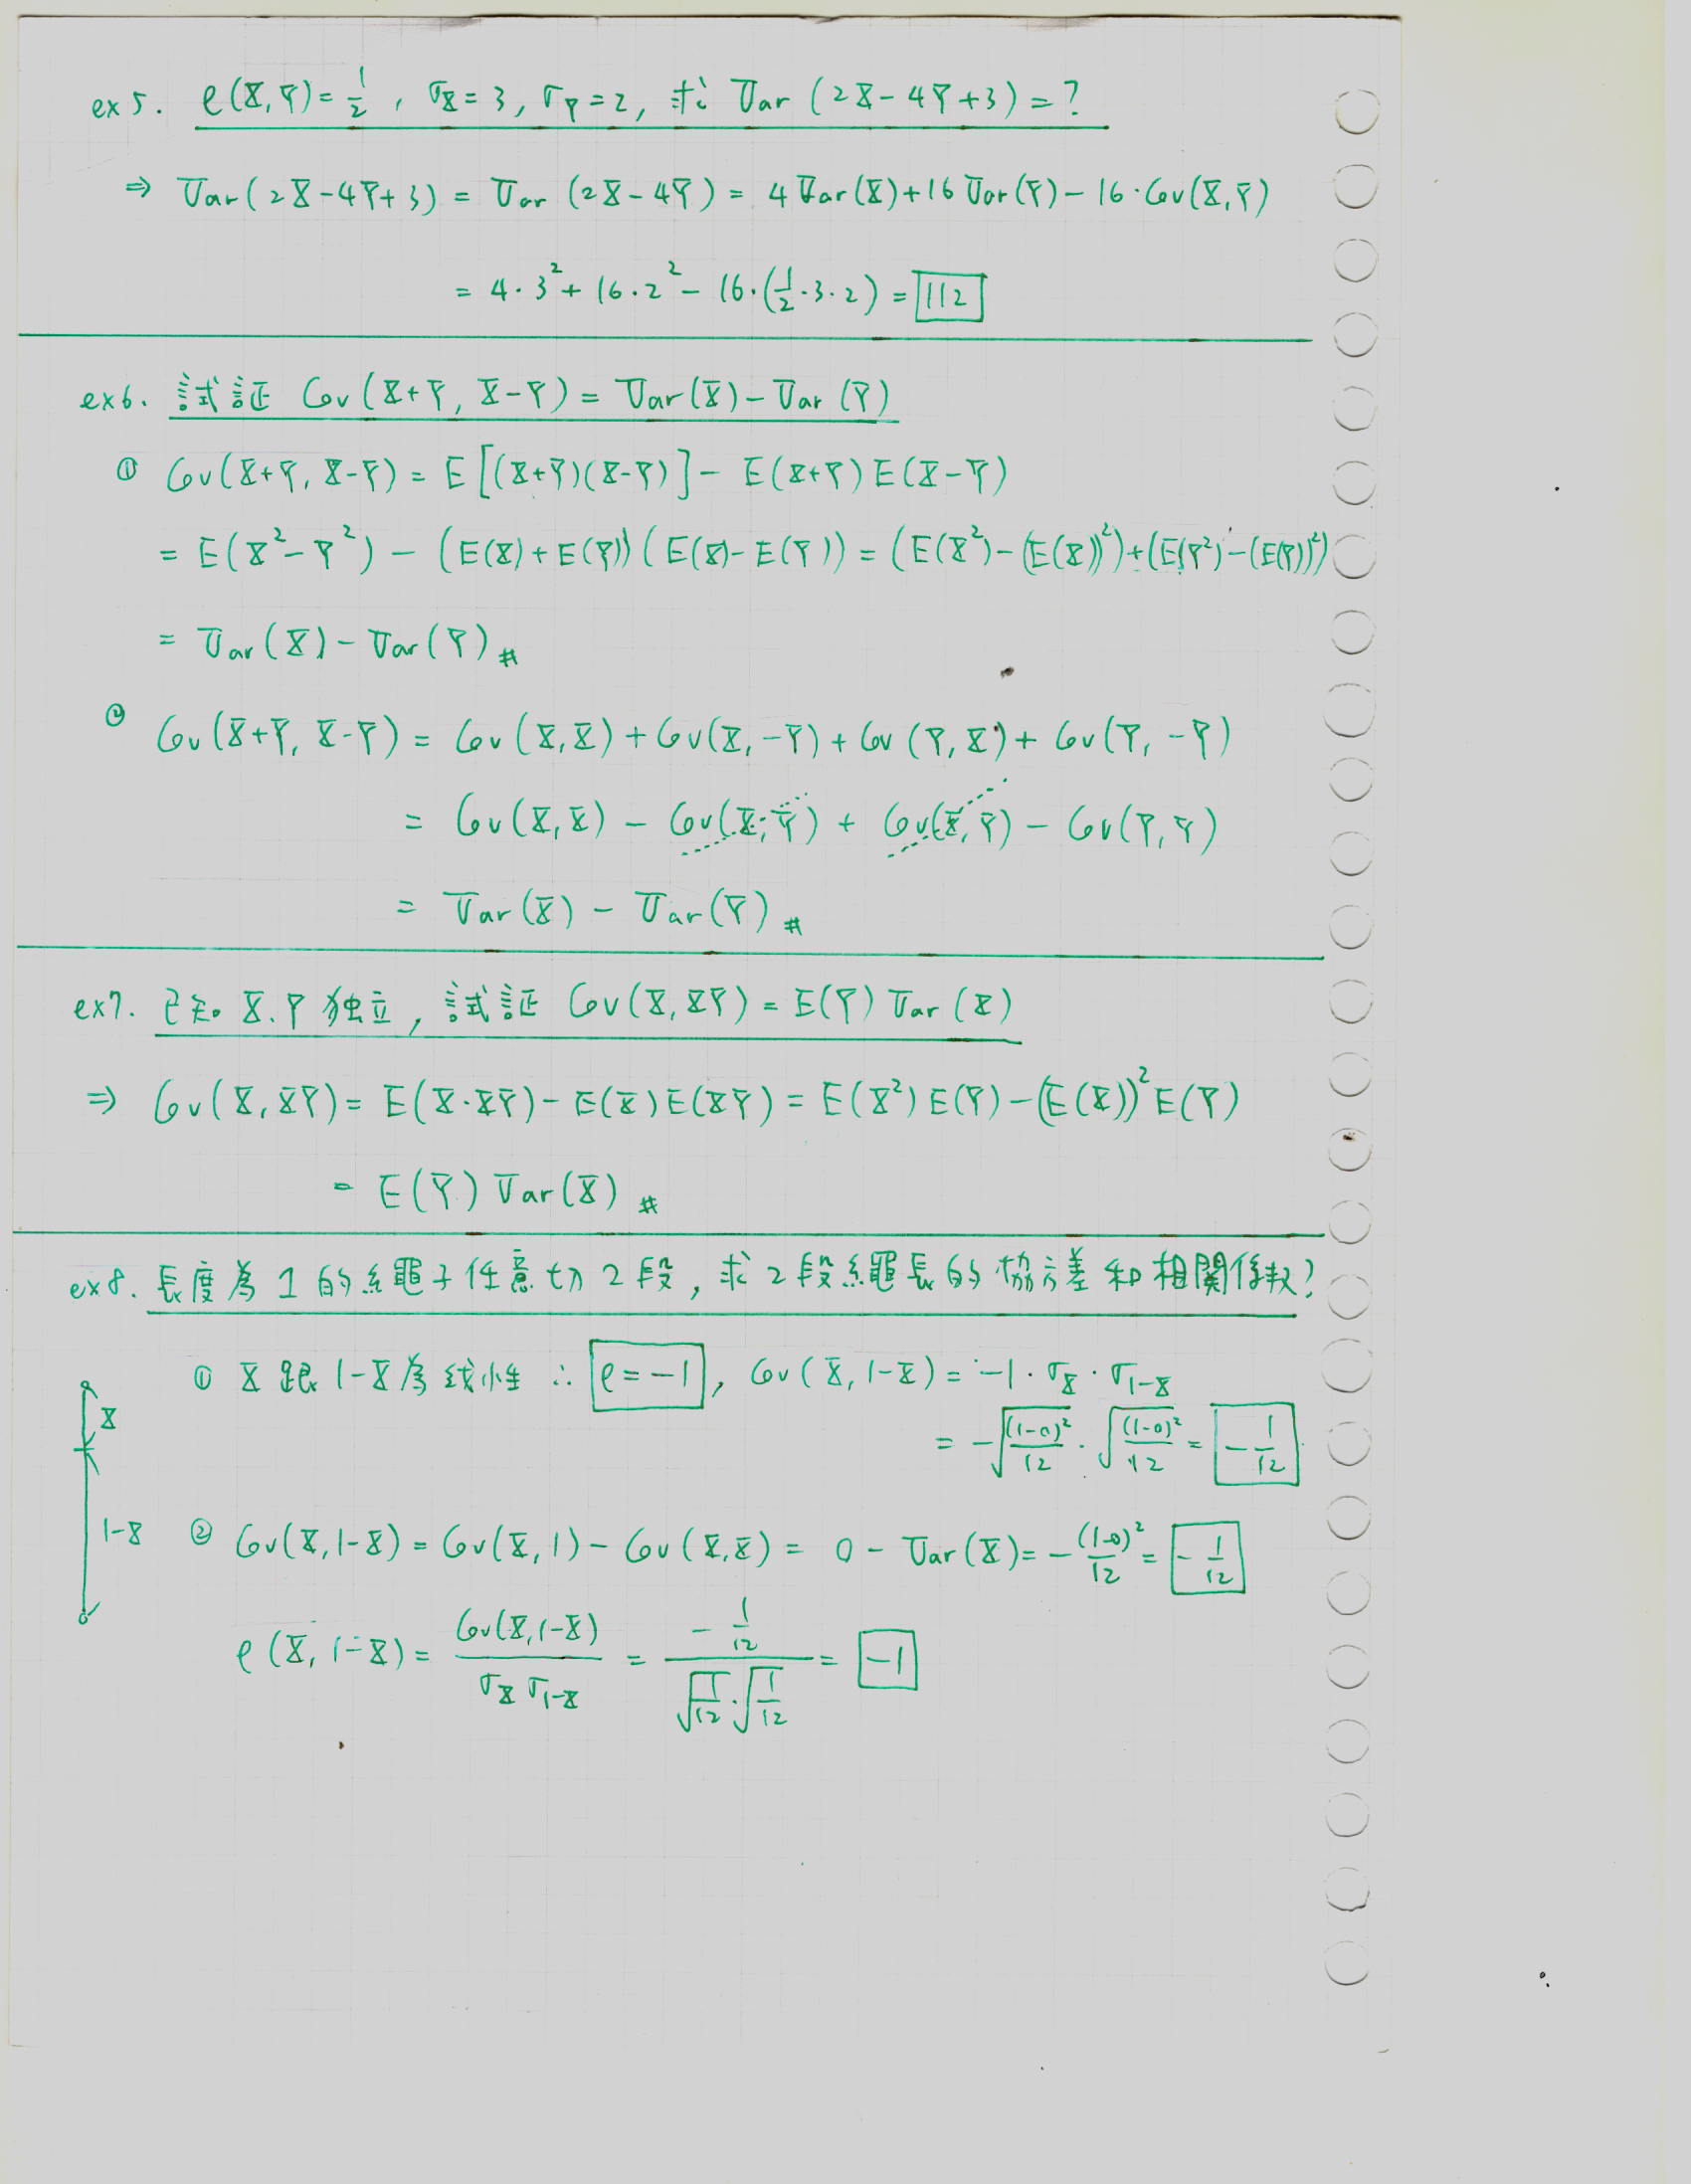 ex5. ρ(X,Y)=1/2, σX=3, σY=2, 求 Var(2X-4Y+3)=?
⇒ Var(2X-4Y+3) = Var(2X-4Y) = 4Var(X)+16Var(Y)-16·Cov(X,Y)
= 4·3²+16·2²-16·(1/2·3·2) = 112
ex6. 試証 Cov(X+Y, X-Y) = Var(X)-Var(Y)
① Cov(X+Y, X-Y) = E[(X+Y)(X-Y)] - E(X+Y)E(X-Y)
= E(X²-Y²) - (E(X)+E(Y))(E(X)-E(Y)) = (E(X²)-(E(X))²)+(E(Y²)-(E(Y))²)
= Var(X)-Var(Y) #
② Cov(X+Y, X-Y) = Cov(X,X)+Cov(X,-Y)+Cov(Y,X)+Cov(Y,-Y)
= Cov(X,X) - Cov(X,Y) + Cov(X,Y) - Cov(Y,Y)
= Var(X) - Var(Y) #
ex7. 已知 X.Y 独立, 試証 Cov(X,XY) = E(Y)Var(X)
⇒ Cov(X,XY) = E(X·XY)-E(X)E(XY) = E(X²)E(Y)-(E(X))²E(Y)
= E(Y)Var(X) #
ex8. 長度為1的繩子任意切2段, 求2段繩長的協方差和相關係数?
① X跟1-X為线性 ∴ ρ=-1, Cov(X,1-X) = -1·σX·σ1-X
X
= -√((1-0)²/12)·√((1-0)²/12) = -1/12
1-X
② Cov(X,1-X) = Cov(X,1)-Cov(X,X) = 0-Var(X) = -(1-0)²/12 = -1/12
ρ(X,1-X) = Cov(X,1-X)/σXσ1-X = -1/12/√(1/12)·√(1/12) = -1